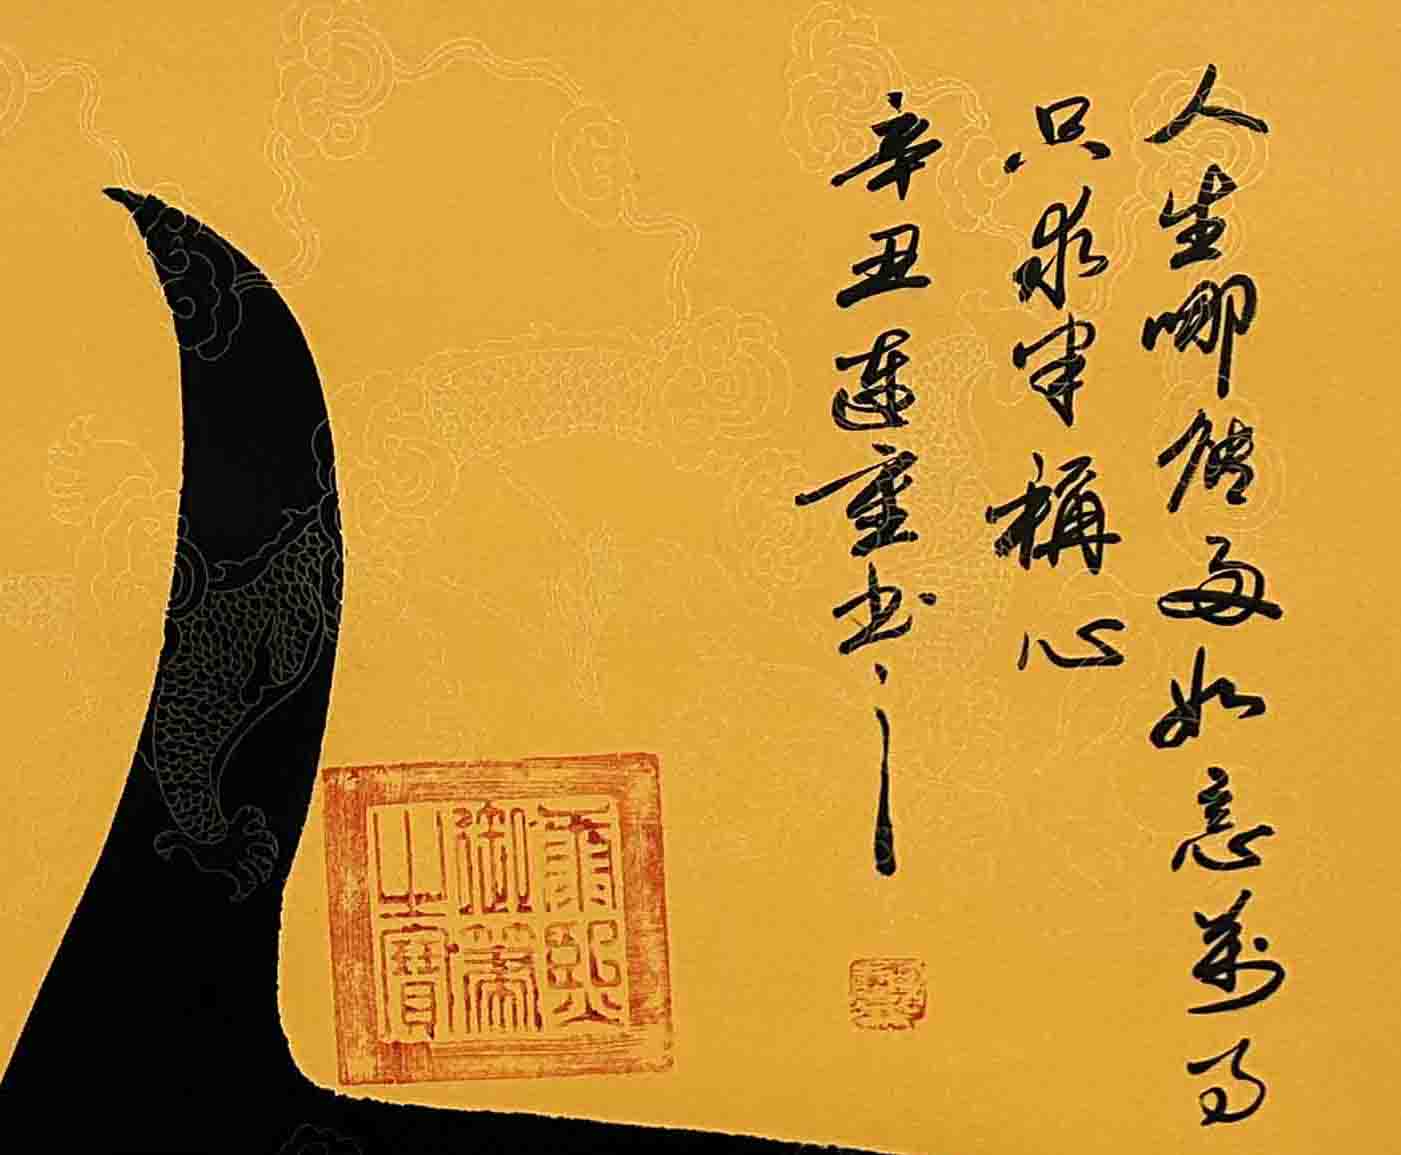 人生哪能多如意萬事
只求半稱心
辛丑連重书
康熙
御筆
之寶